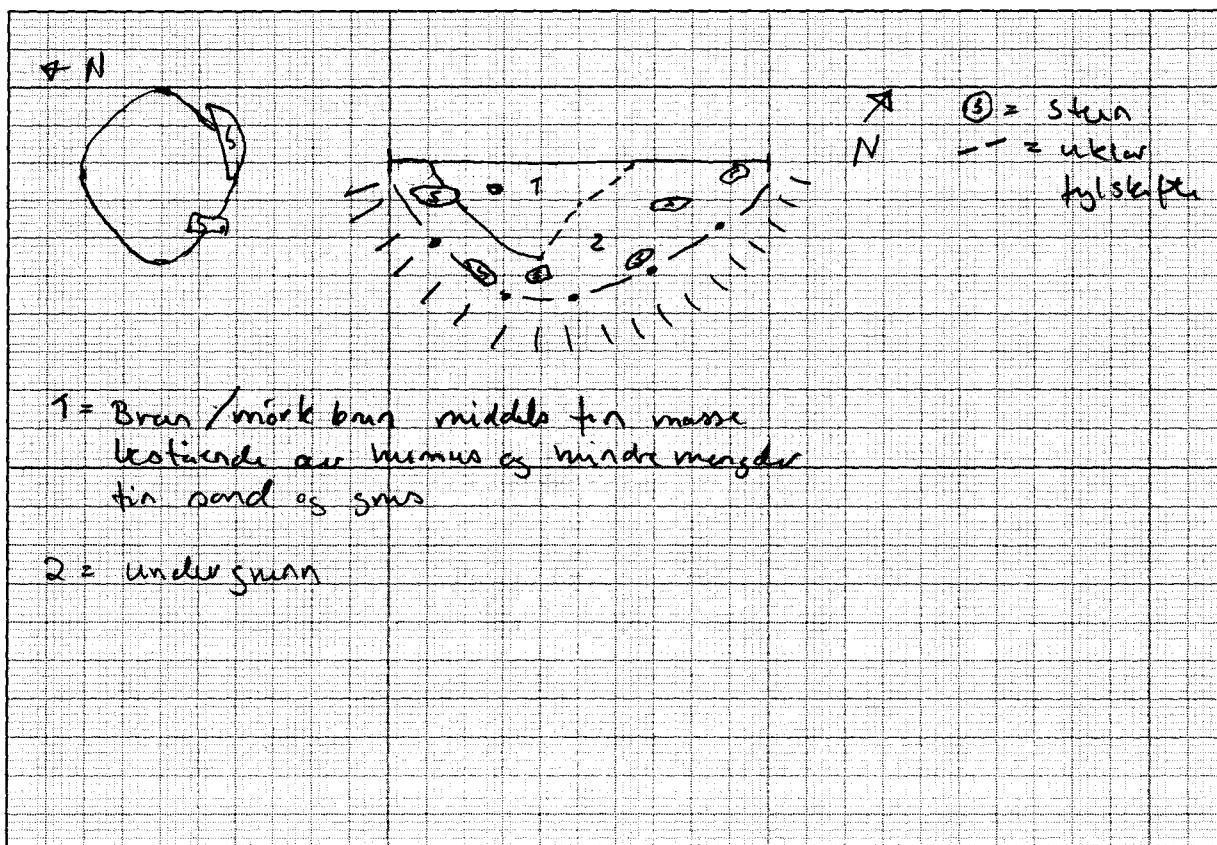 ← N
S
S
N
Ⓢ = stein
--- = uklar
fyllskifte
S
1
2
S
S
S
S
S
1 = Brun / mörk brun middels fin masse
bestående av humus og mindre mengder
fin sand og grus
2 = undergrunn